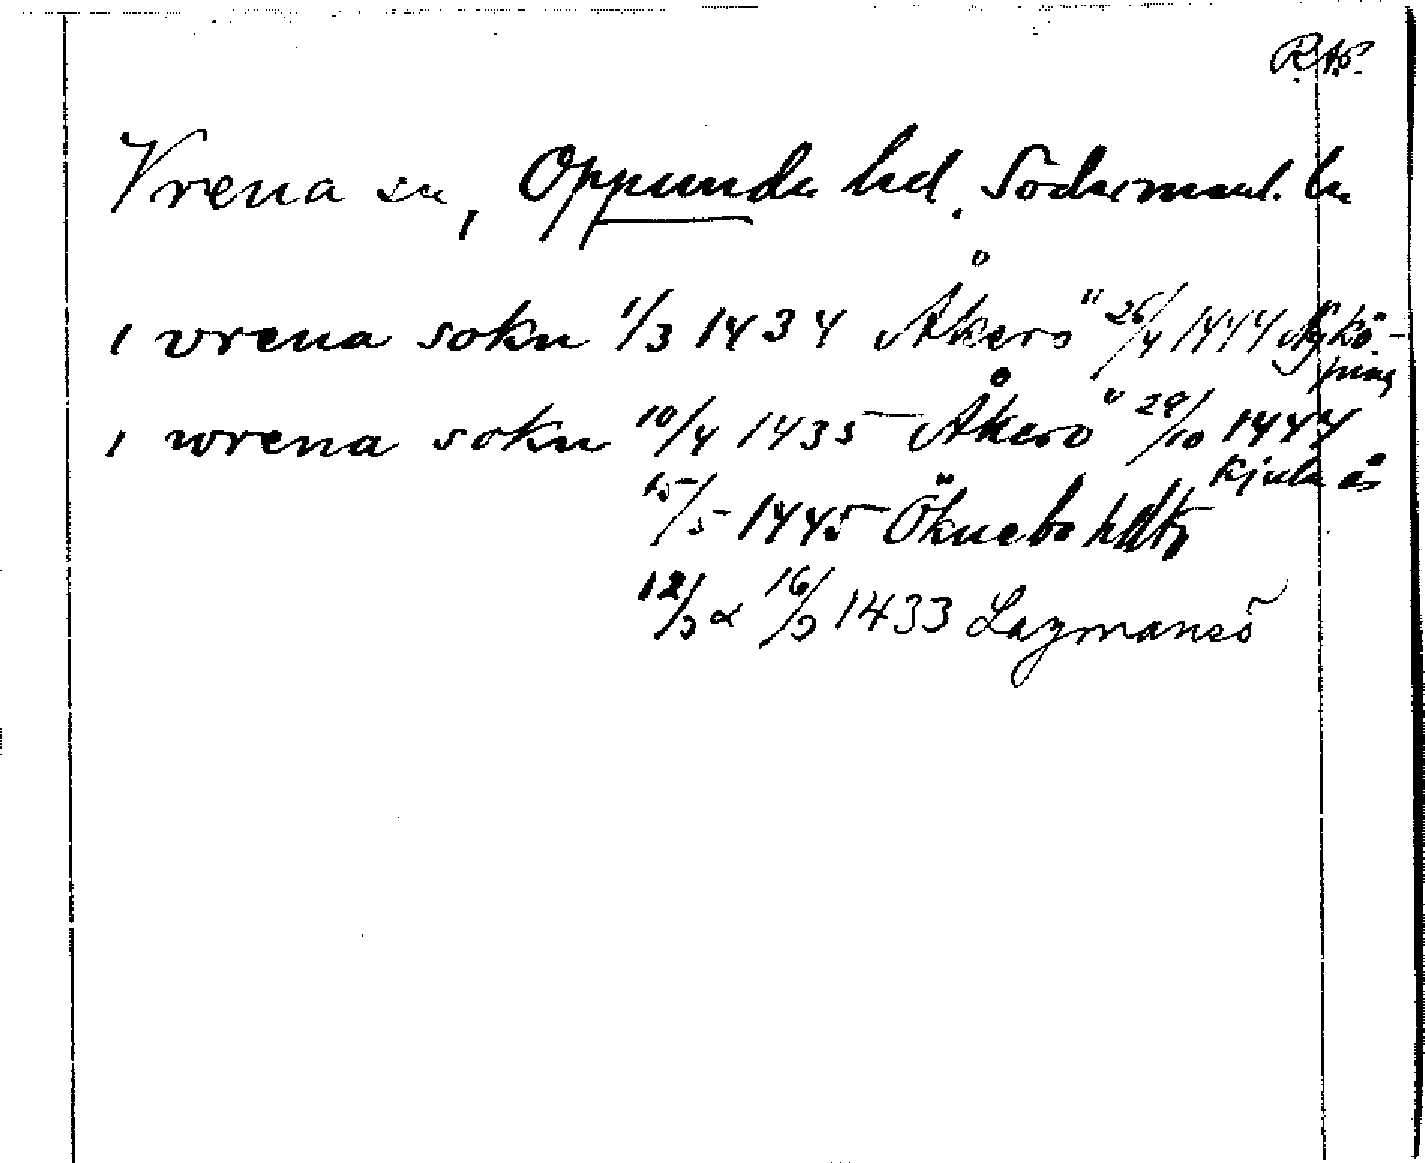 R.A.P.
Vrena sn, Oppunda hd. Södermanl. ln
i vrena sokn 1/3 1434 Åkerö 26/4 1444 Nykö-
ping
i wrena sokn 10/4 1435 Åkerö 29/10 1447
Kjula ås
15/5 1445 Öknebo
12/2 & 16/2 1433 Lagmansö